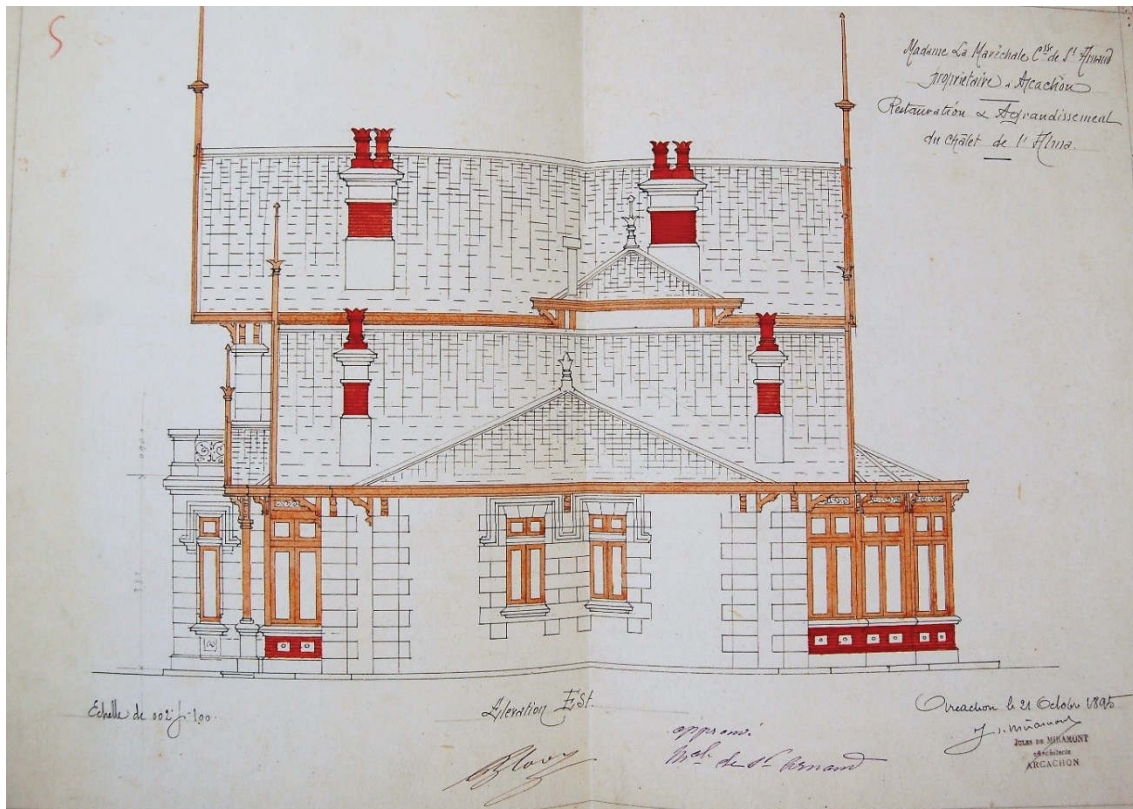 S
Madame La Maréchale Csse de St Arnaud
propriétaire à Arcachon
Restauration & Agrandissement
du châlet de l'Alma.
Echelle de 002 pr 1.00.
Elévation Est.
approuvé
Mal de St Arnaud
Arcachon le 21 Octobre 1895
J. de Miramont
JULES DE MIRAMONT
Architecte
ARCACHON